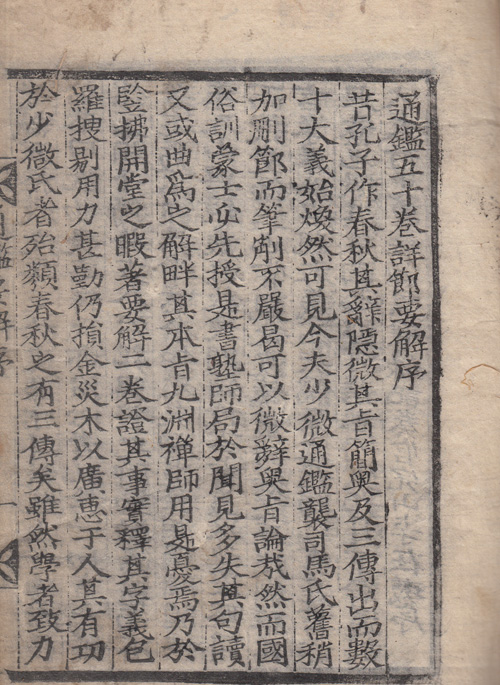 通鑑五十卷詳節要解序
昔孔子作春秋其辭隱微其旨簡奧及三傳出而數
十大義始煥然可見今夫少微通鑑襲司馬氏舊稍
加刪節而筆削不嚴曷可以微辭奧旨論㢤然而國
俗訓蒙士必先授是書塾師局於聞見多失其句讀
又或曲爲之解畔其本旨九淵禪師用是憂焉乃於
豎拂開堂之暇著要解二卷證其事實釋其字義包
羅搜剔用力甚勤仍損金災木以廣惠于人其有功
於少微氏者殆類春秋之有三傳矣雖然學者致力
鑑要解序
一